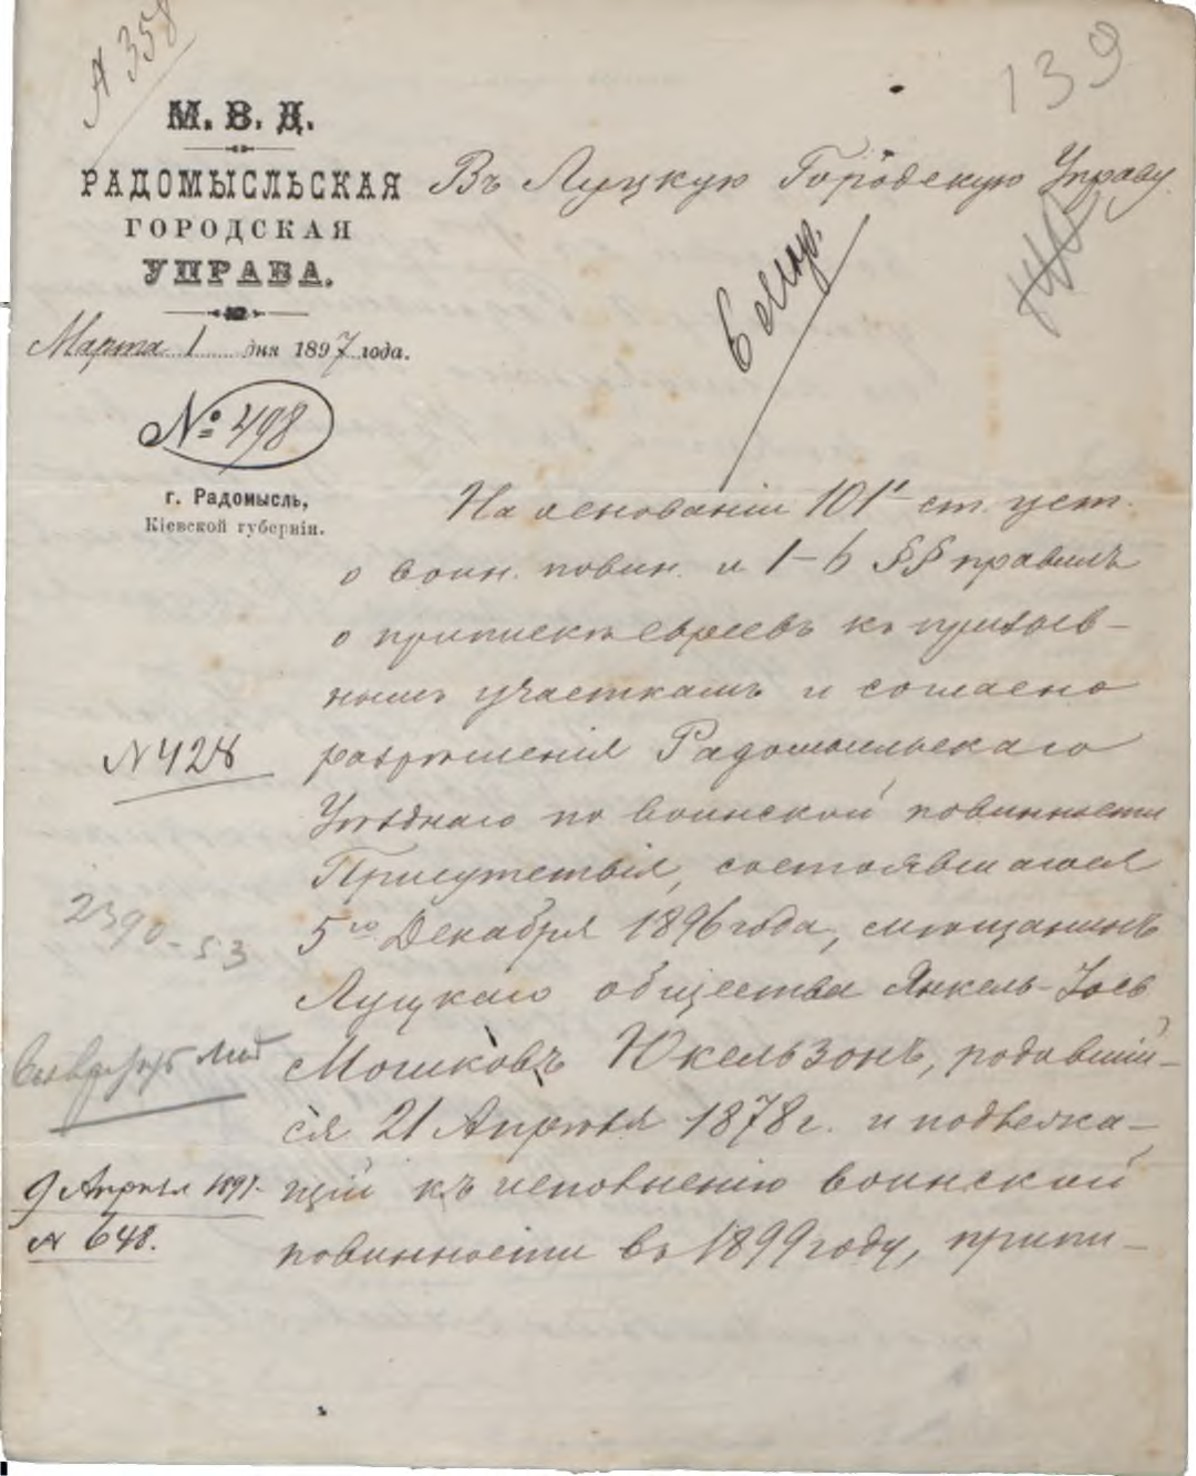 А 358
139
М. В. Д.
РАДОМЫСЛЬСКАЯ
ГОРОДСКАЯ
УПРАВА.
Марта 1 дня 1897 года.
№ 498
г. Радомысль,
Кіевской губерніи.
Въ Луцкую Городскую Управу
6 Мар.
На основаніи 101 ст. уст.
о воин. повин. и 1–6 §§ правилъ
о припискѣ евреевъ къ призыв-
нымъ участкамъ и согласно
N 428
разрѣшенія Радомысльскаго
Уѣзднаго по воинской повинности
Присутствія, состоявшагося
2390-53
5го Декабря 1896 года, мѣщанинъ
Луцкаго общества Янкель-Іось
Мошковъ Юкельзонъ, родившій-
ся 21 Апрѣля 1878 г. и подлежа-
9 Апрѣля 1897.
щій къ исполненію воинской
N 648.
повинности въ 1899 году, припи-